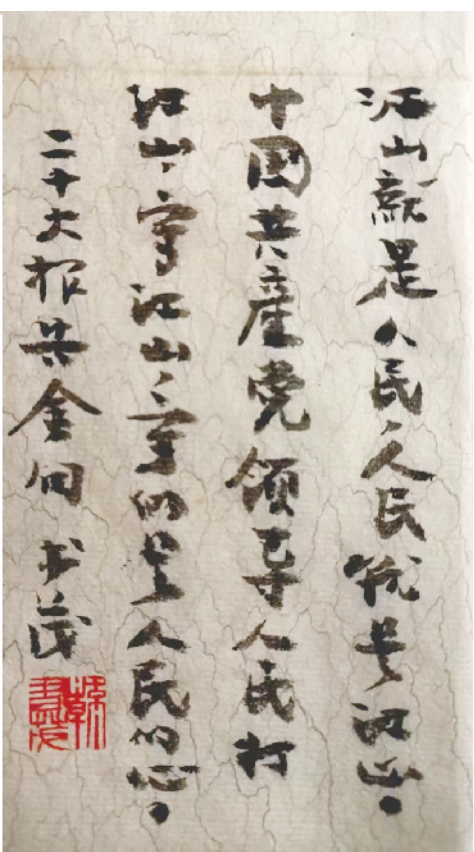 江山就是人民、人民就是江山。
中国共產党领导人民打
江山、守江山、守的是人民的心。
二十大报告金句 书茂